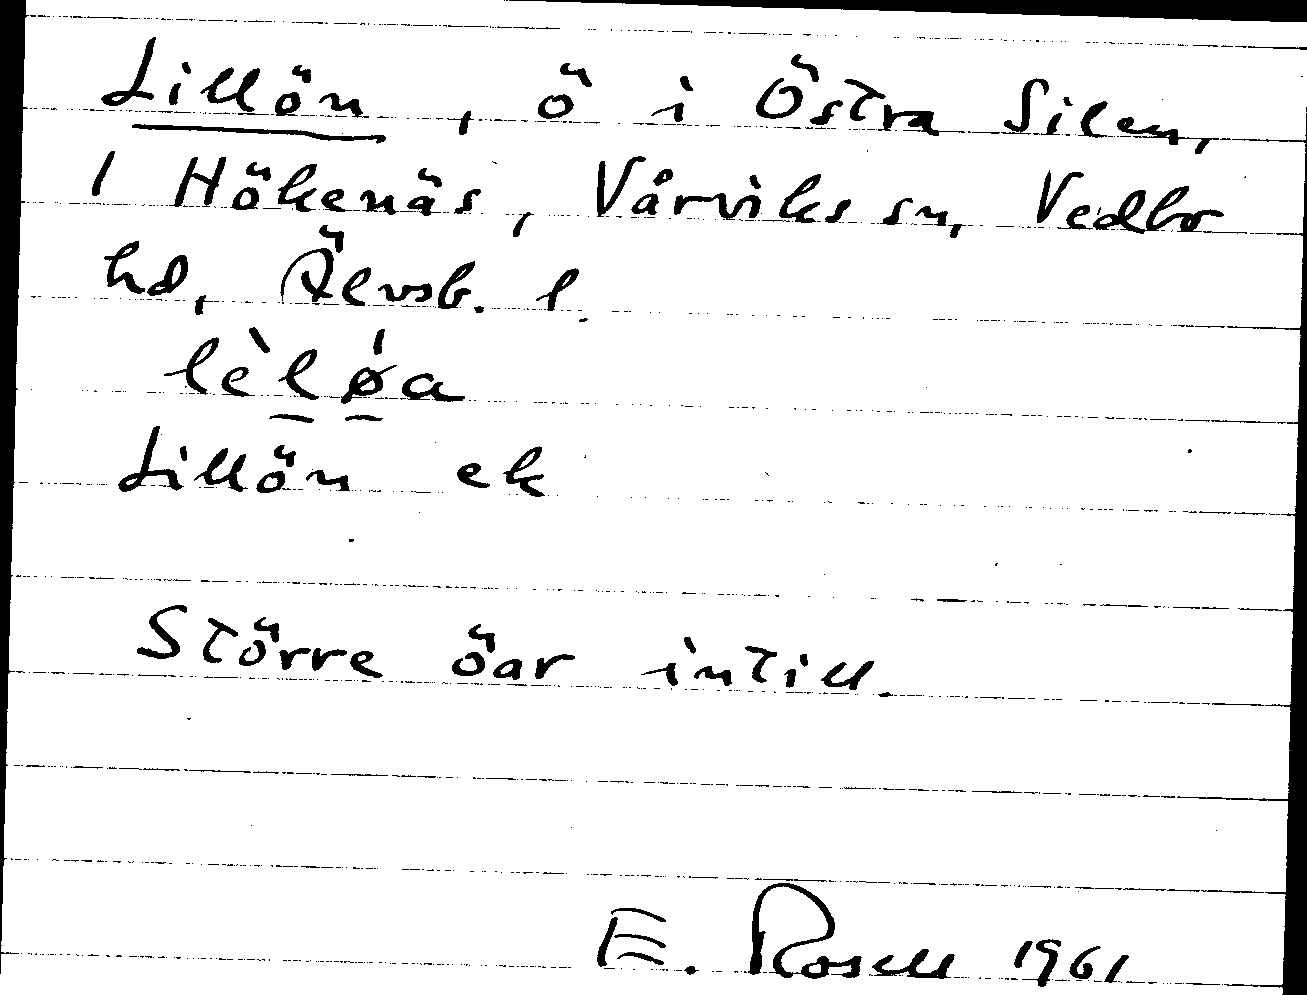 Lillön, ö i Östra Silen,
1 Hökenäs, Vårviks sn, Vedbo
hd, Älvsb. l.
lèl̲ǿ̲a
Lillön ek
Större öar intill.
E. Rosell 1961